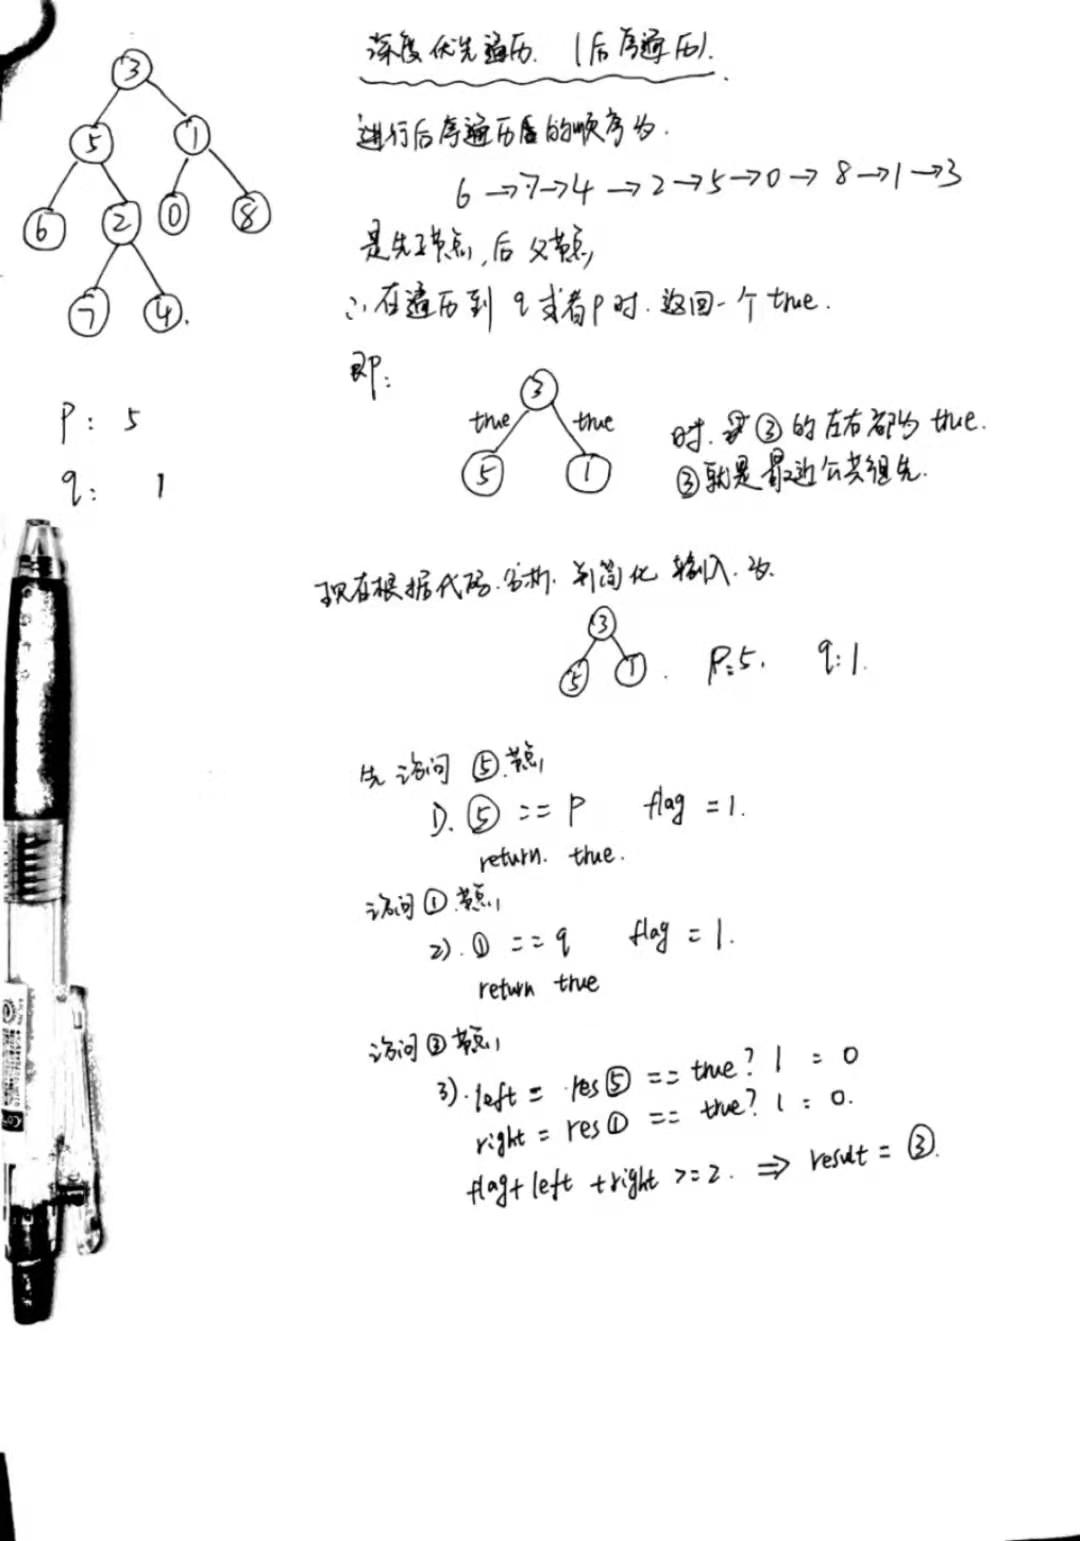 深度优先遍历. (后序遍历).
3
5 1
6 2 0 8
7 4
进行后序遍历后的顺序为.
6→7→4→2→5→0→8→1→3
是先子节点,后父节点
∴在遍历到 q 或者p时.返回一个true.
即:
3
true true
5 1
时. ③的左右都为 true.
③就是最近公共祖先.
P: 5
q: 1
现在根据代码.分析. 简化 输入.为
3
5 1. P:5. q:1.
先访问 ⑤节点
1). ⑤ == P flag =1.
return. true.
访问①节点
2). ① == q flag = 1.
return true
访问③节点
3). left = res⑤ == true? 1 : 0
right = res① == true? 1 : 0.
flag+left +right >=2. ⇒ result = ③.